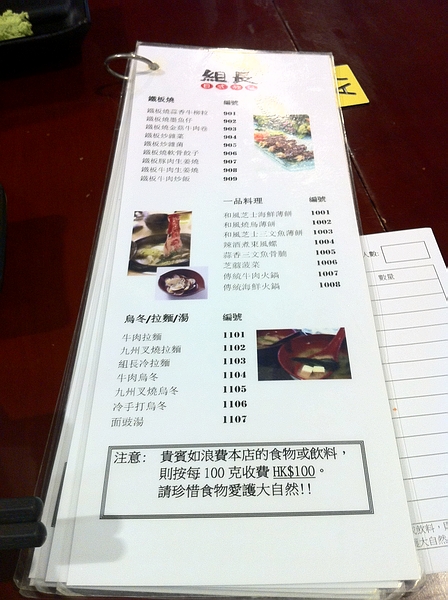 組長
鐵板燒 編號
鐵板燒蒜香牛柳粒 901
鐵板燒墨魚仔 902
鐵板燒金菇牛肉卷 903
鐵板炒雜菜 904
鐵板炒雜菌 905
鐵板燒軟骨餃子 906
鐵板豚肉生姜燒 907
鐵板牛肉生姜燒 908
鐵板牛肉炒飯 909
一品料理 編號
和風芝士海鮮薄餅 1001
和風燒鳥薄餅 1002
和風芝士三文魚薄餅 1003
辣酒煮東風螺 1004
蒜香三文魚骨腩 1005
芝麻菠菜 1006
傳統牛肉火鍋 1007
傳統海鮮火鍋 1008
烏冬/拉麵/湯 編號
牛肉拉麵 1101
九州叉燒拉麵 1102
組長冷拉麵 1103
牛肉烏冬 1104
九州叉燒烏冬 1105
冷手打烏冬 1106
面豉湯 1107
注意: 貴賓如浪費本店的食物或飲料,
則按每100克收費HK$100。
請珍惜食物愛護大自然!!
人數:
數量